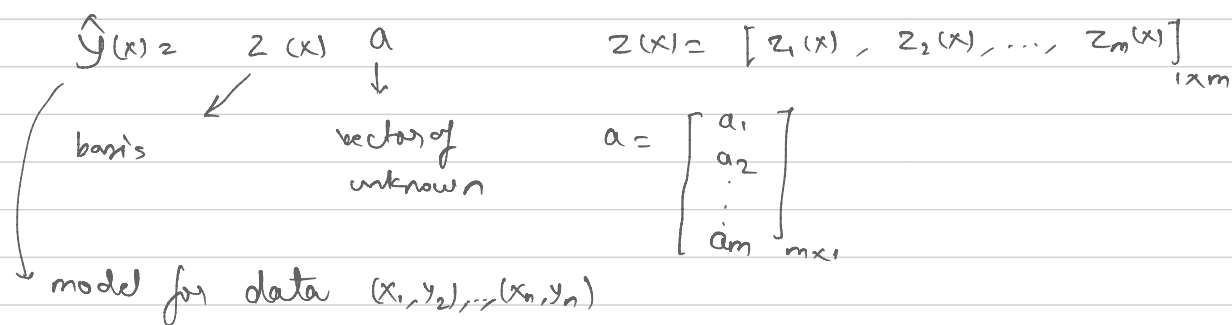 ŷ(x) = z(x) a    z(x) = [z₁(x), z₂(x), ..., zₘ(x)]₁ₓₘ
basis    vector of unknown    a = [a₁ a₂ ⋮ aₘ]ₘₓ₁
model for data (x₁,y₂),..,(xₙ,yₙ)